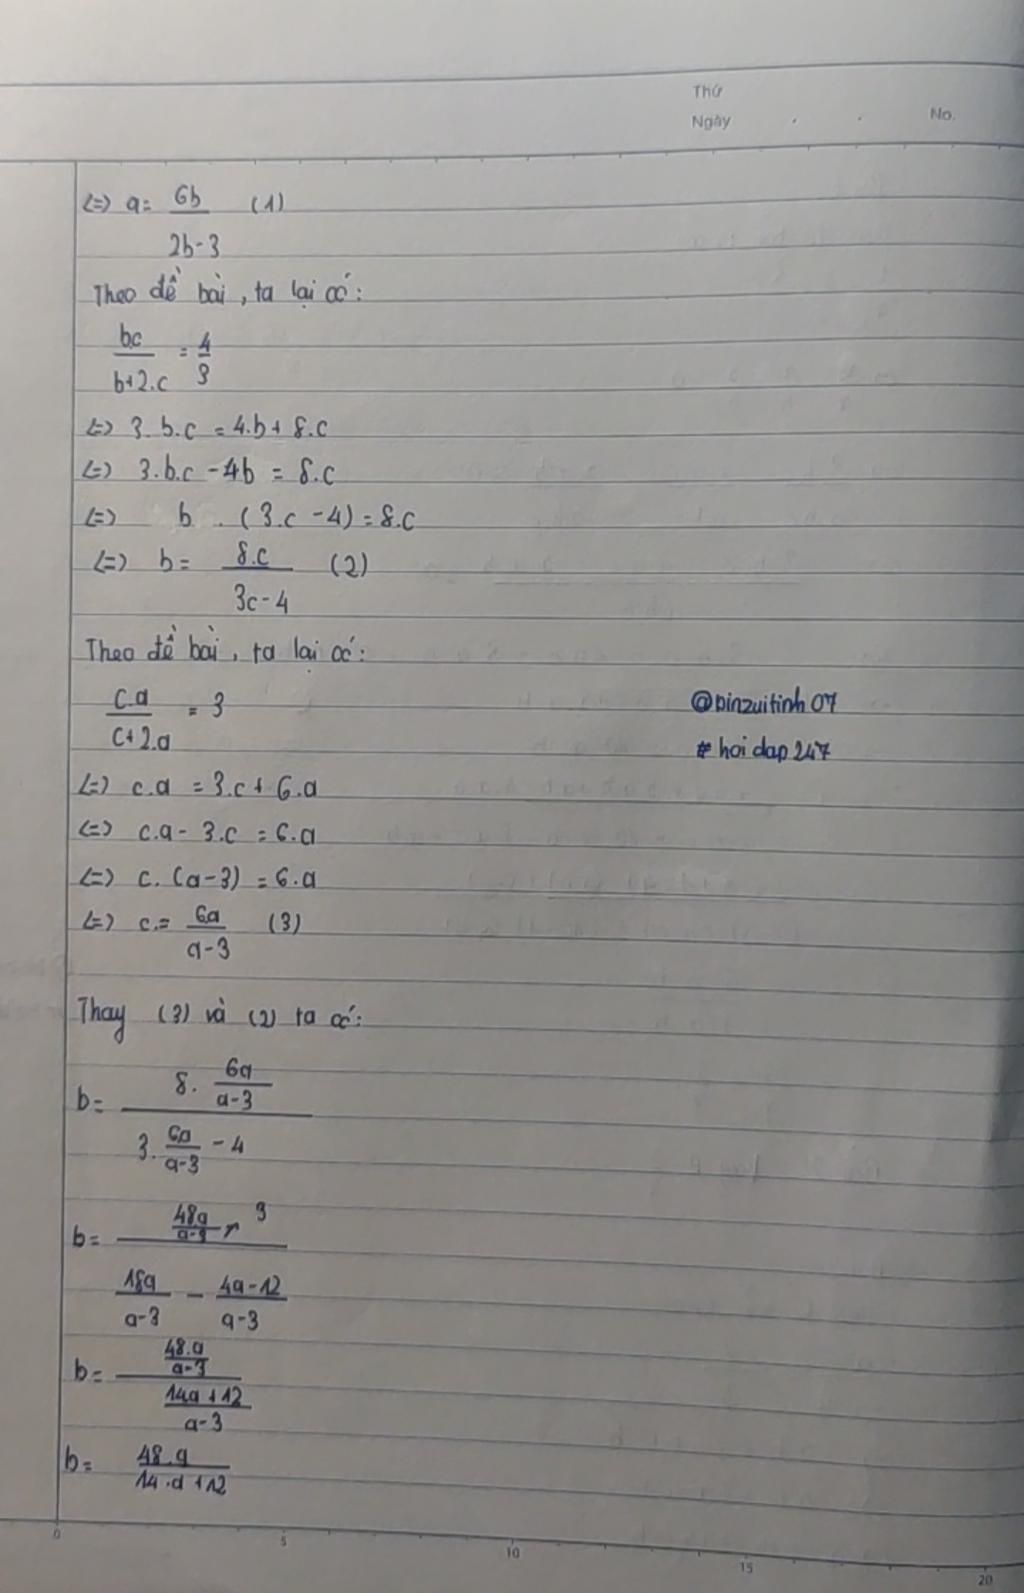 Thứ
Ngày . . No.
<=> a = 6b / 2b-3 (1)
Theo đề bài, ta lại có:
bc / b+2.c = 4/3
<=> 3.b.c = 4.b + 8.c
<=> 3.b.c - 4b = 8.c
<=> b . (3.c - 4) = 8.c
<=> b = 8.c / 3c-4 (2)
Theo đề bài, ta lại có:
c.a / c+2.a = 3
@binzuitinh07
# hoidap247
<=> c.a = 3.c + 6.a
<=> c.a - 3.c = 6.a
<=> c.(a-3) = 6.a
<=> c = 6a / a-3 (3)
Thay (3) và (2) ta có:
b = 8. 6a/a-3 / 3. 6a/a-3 - 4
b = 48a/a-3 / 18a/a-3 - 4a-12/a-3
b = 48.a/a-3 / 14a+12/a-3
b = 48.a / 14.a+12
0 5 10 15 20